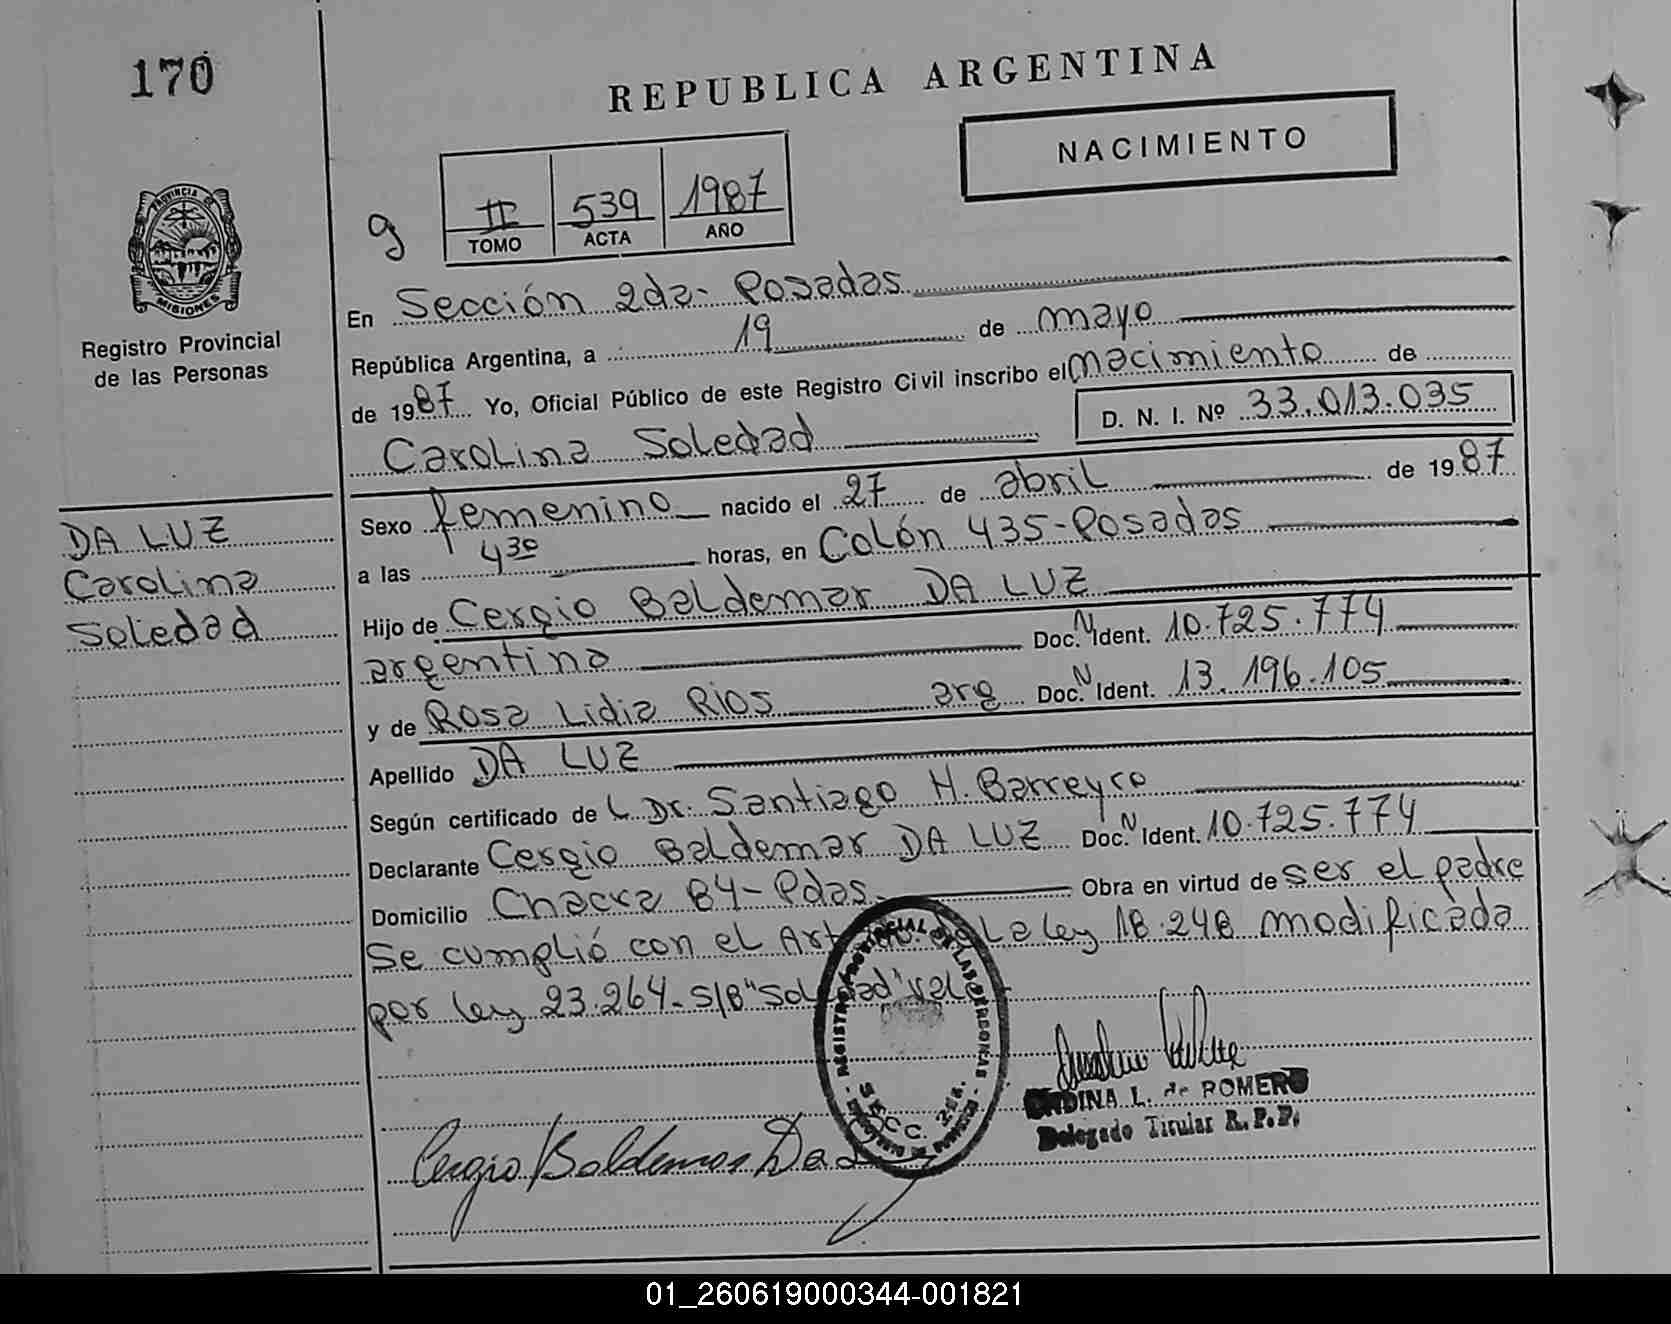 170
REPUBLICA ARGENTINA
NACIMIENTO
g
II 539 1987
TOMO ACTA AÑO
PROVINCIA DE
MISIONES
Registro Provincial
de las Personas
En Sección 2da- Posadas
República Argentina, a 19 de mayo
de 1987 Yo, Oficial Público de este Registro Civil inscribo el nacimiento de
D. N. I. Nº 33.013.035
Carolina Soledad
Sexo femenino nacido el 27 de abril de 1987
a las 4 30 horas, en Colón 435-Posadas
Hijo de Cergio Baldemar DA LUZ
argentino Doc. N Ident. 10.725.774
y de Rosa Lidia Rios arg Doc. N Ident. 13.196.105
Apellido DA LUZ
Según certificado de L. Dr. Santiago H. Barreyro
Declarante Cergio Baldemar DA LUZ Doc. N Ident. 10.725.774
Domicilio Chacra 84- Pdas. Obra en virtud de ser el padre
Se cumplió con el Art de la ley 18.248 modificada
por ley 23.264- S/B "Soledad" vale
DA LUZ
Carolina
Soledad
REGISTRO PROVINCIAL DE LAS PERSONAS
SECC. 2da.
Cergio Baldemar Da L
L. de ROMERO
Delegado Titular R.P.P.
01_260619000344-001821